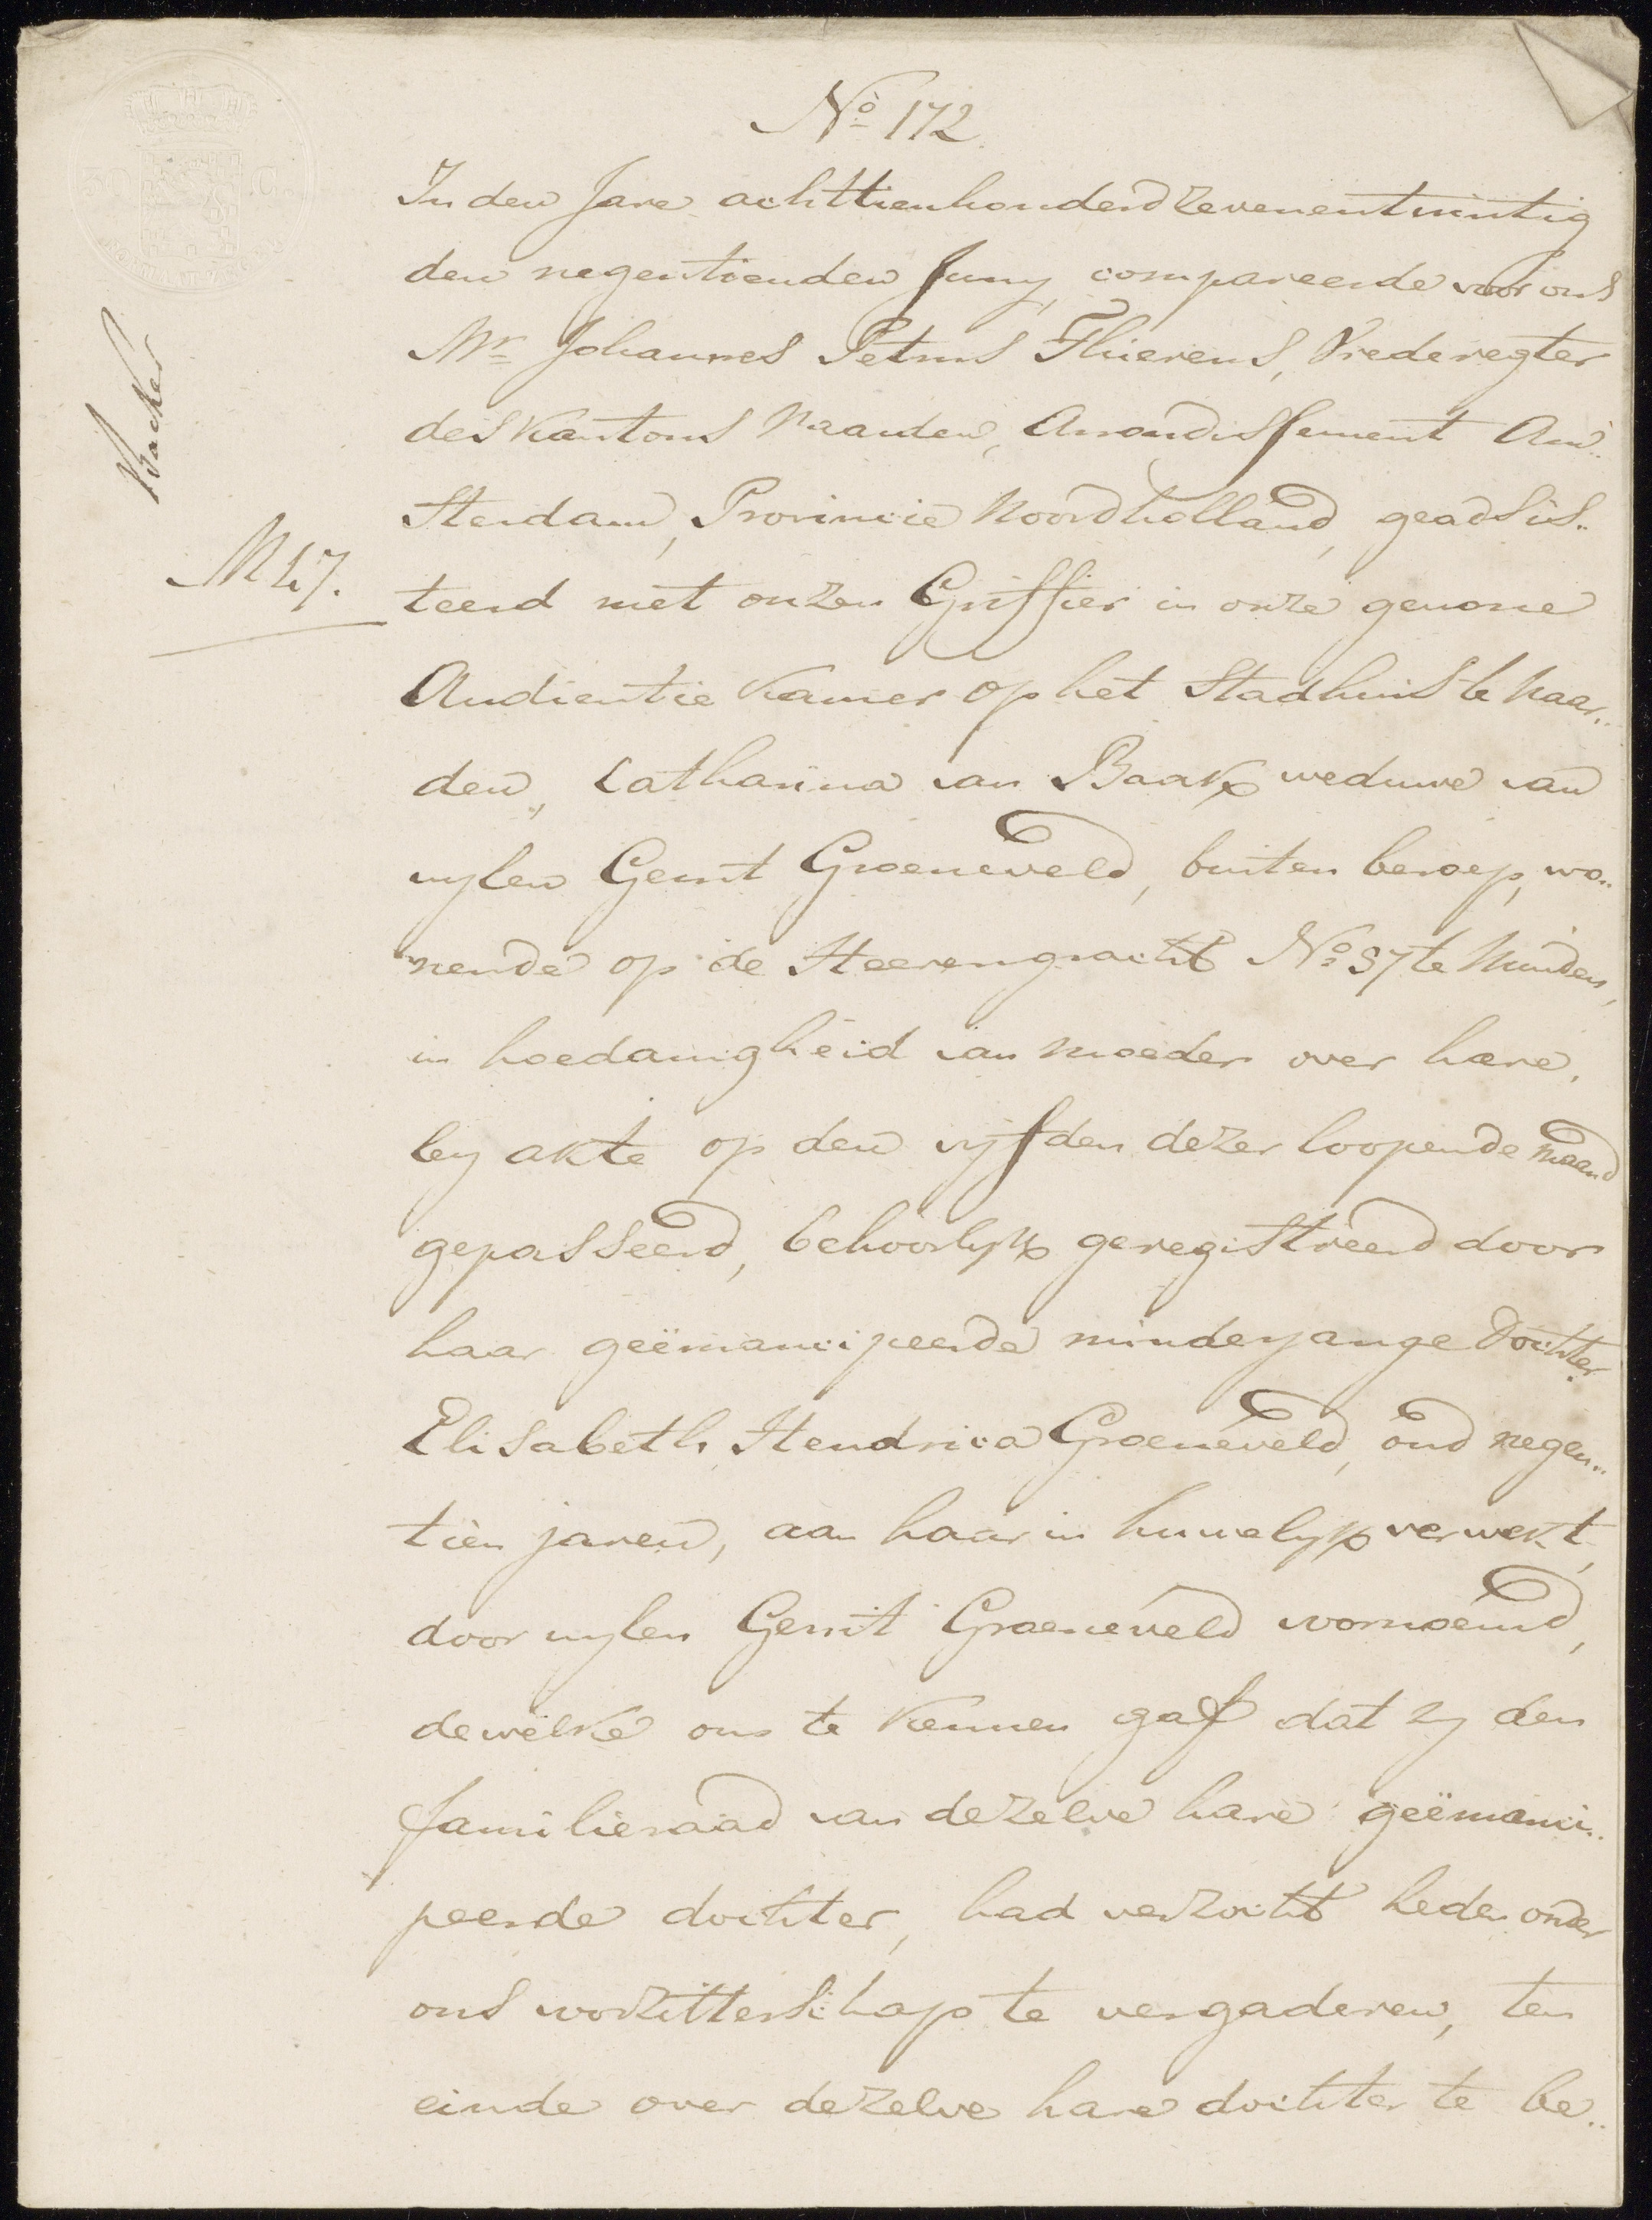 No 172
In den Jare achttienhonderd zevenentwintig
den negentienden Juny, compareerde voor ons
Mr Johannes Petrus Thierens, Vrederegter
des Kantons Naarden, Arrondissement Am..
sterdam, Provincie Noordholland, geadsis..
teerd met onzen Griffier in onze gewone
Audientie Kamer op het Stadhuis te Naar..
den, Catharina van Baak weduwe van
wylen Gerrit Groeneveld, buiten beroep, wo..
nende op de Heerengracht No 97 te Muiden,
in hoedanigheid van moeder over hare,
by akte op den vyfden dezer loopende maand
gepasseerd, behoorlyk geregistreerd door
haar geëmancipeerde minderjarige Dochter
Elisabeth Hendrica Groeneveld, oud negen..
tien jaren, aan haar in huwelyk verwekt,
door wylen Gerrit Groeneveld voornoemd,
dewelke ons te kennen gaf dat zy den
familieraad van dezelve hare geëmanci..
peerde dochter, had verzocht heden onder
ons voorzitterschap te vergaderen, ten
einde over dezelve hare dochter te be..
Backer
M 47.